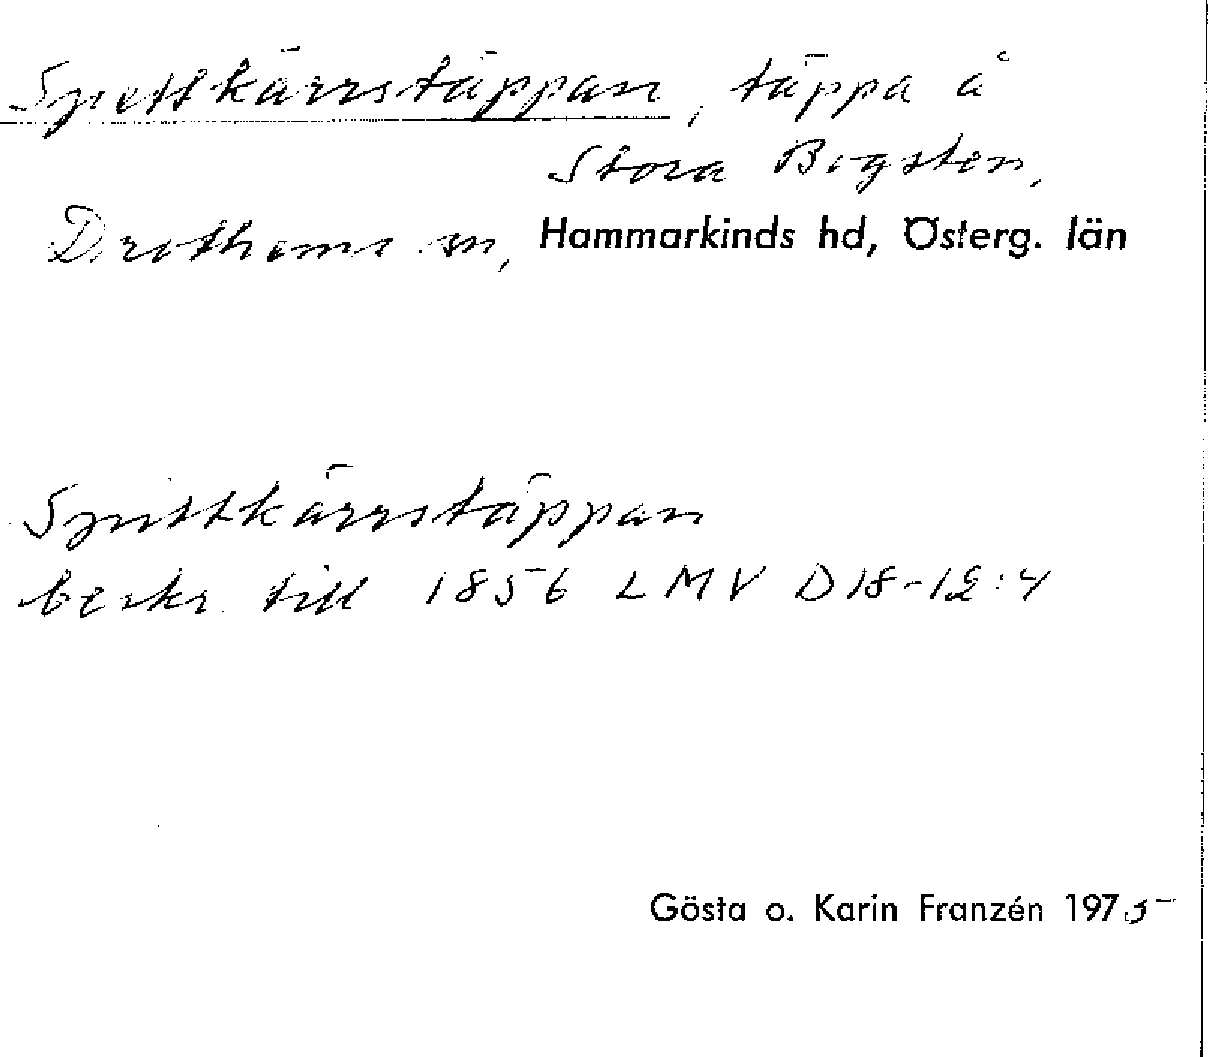 Spettkärrstäppan, täppa å
Stora Bogsten,
Drothems sn, Hammarkinds hd, Österg. län
Spittkärrstäppan
beskr till 1856 LMV D18-12:4
Gösta o. Karin Franzén 1975